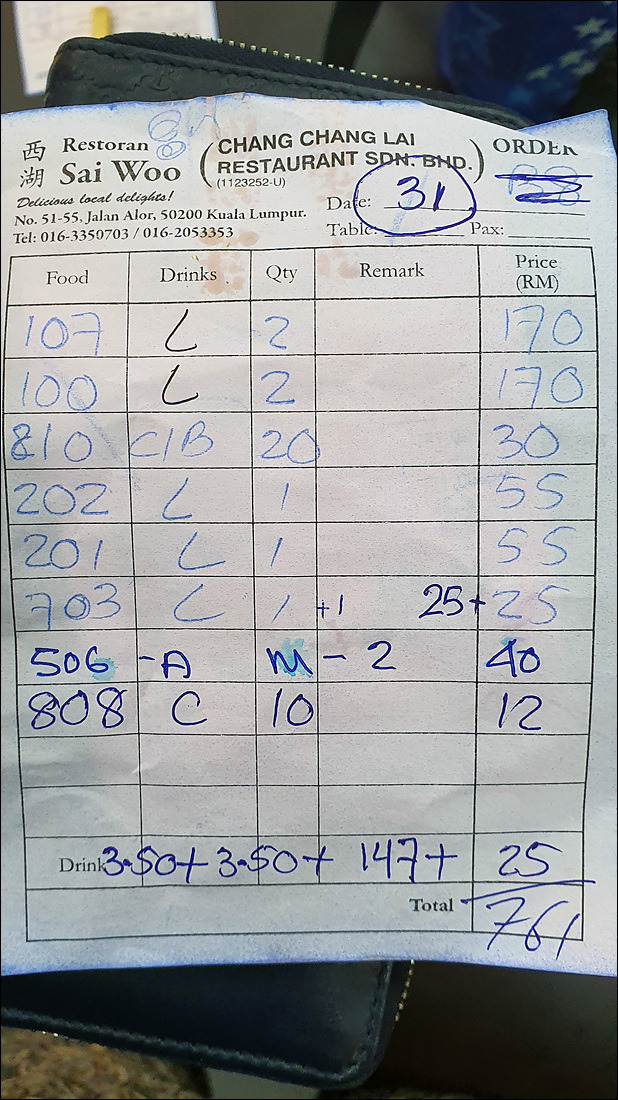 西湖 Restoran Sai Woo (CHANG CHANG LAI RESTAURANT SDN. BHD.) ORDER
(1123252-U)
Delicious local delights!
No. 51-55, Jalan Alor, 50200 Kuala Lumpur.
Tel: 016-3350703 / 016-2053353
Date: 31
Table: Pax:
Food Drinks Qty Remark Price (RM)
107 L 2 170
100 L 2 170
810 C/B 20 30
202 L 1 55
201 L 1 55
703 L 1 +1 25+25
506 -A M - 2 40
808 C 10 12
Drink 3.50+ 3.50+ 147+ 25
Total 761